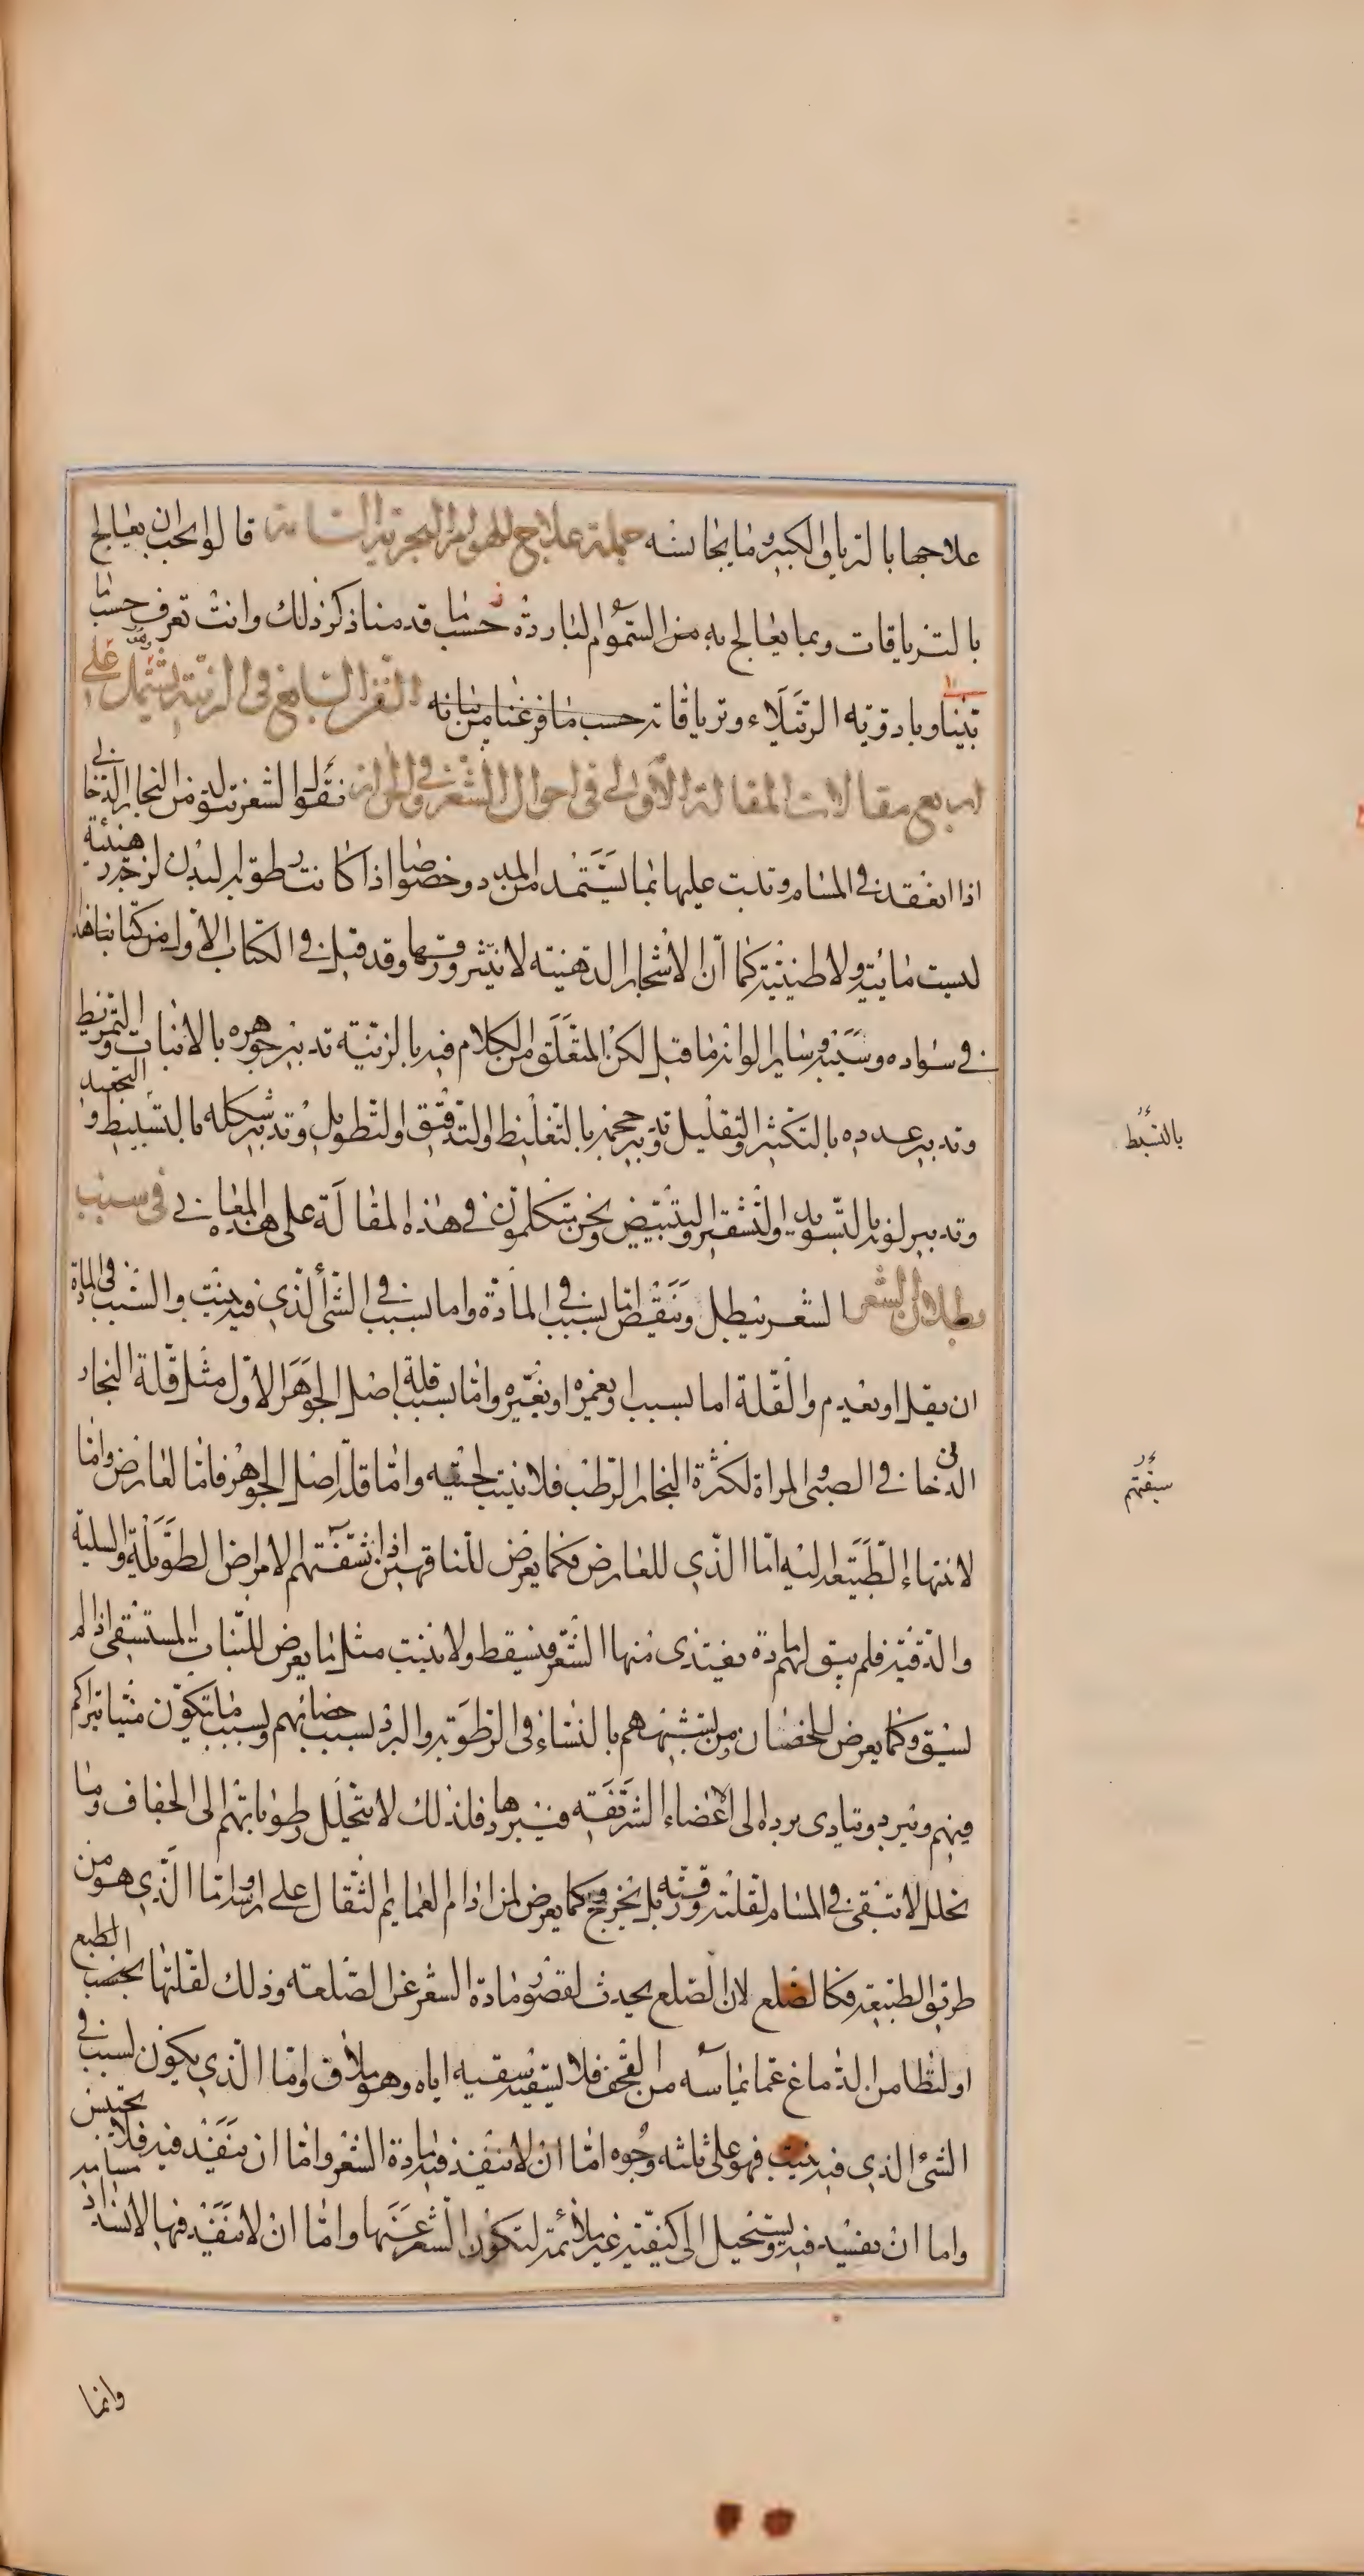 علاجها بالترياق الكبير وما يجانسه جملة علاج الهوام البحرية السامة قالوا يجب ان يعالج
بالترياقات وبما يعالج به من السموم الباردة حسب ما قدمنا ذكر ذلك وانت تعرف حسب ما
بينا وبادوية الرتيلاء وترياقاته حسب ما فرغنا من بيانه الفن السابع في الزينة يشتمل على
اربع مقالات المقالة الاولى في احوال الشعر وفي الحزاز نقول الشعر يتولد من البخار الدخاني
اذا انعقد في المسام وتدبت عليها بما يستمد من المدد وخصوصا اذا كانت رطوبة البدن لزجة دهنية
ليست مائية ولا طينية كما ان الاشجار الدهنية لا ينتثر ورقها وقد قيل في الكتاب الاول من كتابنا هذا
في سواده وشيبه وساير الوانه ما قيل لكن المتعلق من الكلام فيه بالزينة تدبير جوهره بالانبات والتمريط
وتدبير عدده بالتكثير والتقليل وتدبير حجمه بالتغليظ والتدقيق والتطويل وتدبير شكله بالتسبيط والتجعيد
وتدبير لونه بالتسويد والتشقير والتبييض ونحن متكلمون في هذه المقالة على هذه المعاني في سبب
بطلان الشعر الشعر يبطل وينقص اما بسبب في المادة واما بسبب في الشئ الذي فيه ينبت والسبب في المادة
ان يقل او يعدم والقلة اما بسبب او يغمره او يغيره واما بسبب قلة اصل الجوهر الاول مثل قلة البخار
الدخاني في الصبي والمراة لكثرة البخار الرطب فلا ينبت لحيته واما قلة اصل الجوهر فاما لعارض واما
لانتهاء الطبيعة اليه اما الذي للعارض فكما يعرض للناقهين اذا نشفتهم الامراض الطويلة والسلية
والدقية فلم يبق لهم مادة يغتذي منها الشعر فيسقط ولا ينبت مثل ما يعرض للنبات المستسقي اذا لم
يسق وكما يعرض للخصيان ومن يشبههم بالنساء في الرطوبة والبرد بسبب خصائهم وبسبب ما يتكون منيا يتراكم
فيهم ويبرد ويتادى برده الى الاعضاء الشريفة فيبردها فلذلك لا يتحلل رطوباتهم الى الجفاف وما
تحلل لا يبقى في المسام لقلته ورقته بل يخرج وكما يعرض لمن ادام العمايم الثقال على راسه واما الذي هو من
طريق الطبيعة فكالصلع لان الصلع يحدث لقصور مادة الشعر عن الصلعة وذلك لقلتها بحسب الطبع
او لتطامن الدماغ عما يماسه من القحف فلا يسقيه سقيه اياه وهو ملاق واما الذي يكون لسبب في
الشئ الذي فيه ينبت فهو على ثلثه وجوه اما ان لا ينفذ فيه مادة الشعر واما ان ينفذ فيه فلا يحتبس
واما ان يفسد فيه ويستحيل الى كيفية غير ملائمة لتكون الشعر عنها واما ان لا ينفذ فيها لانسداد مسامه
بالتسبط
سبقتهم
وانما